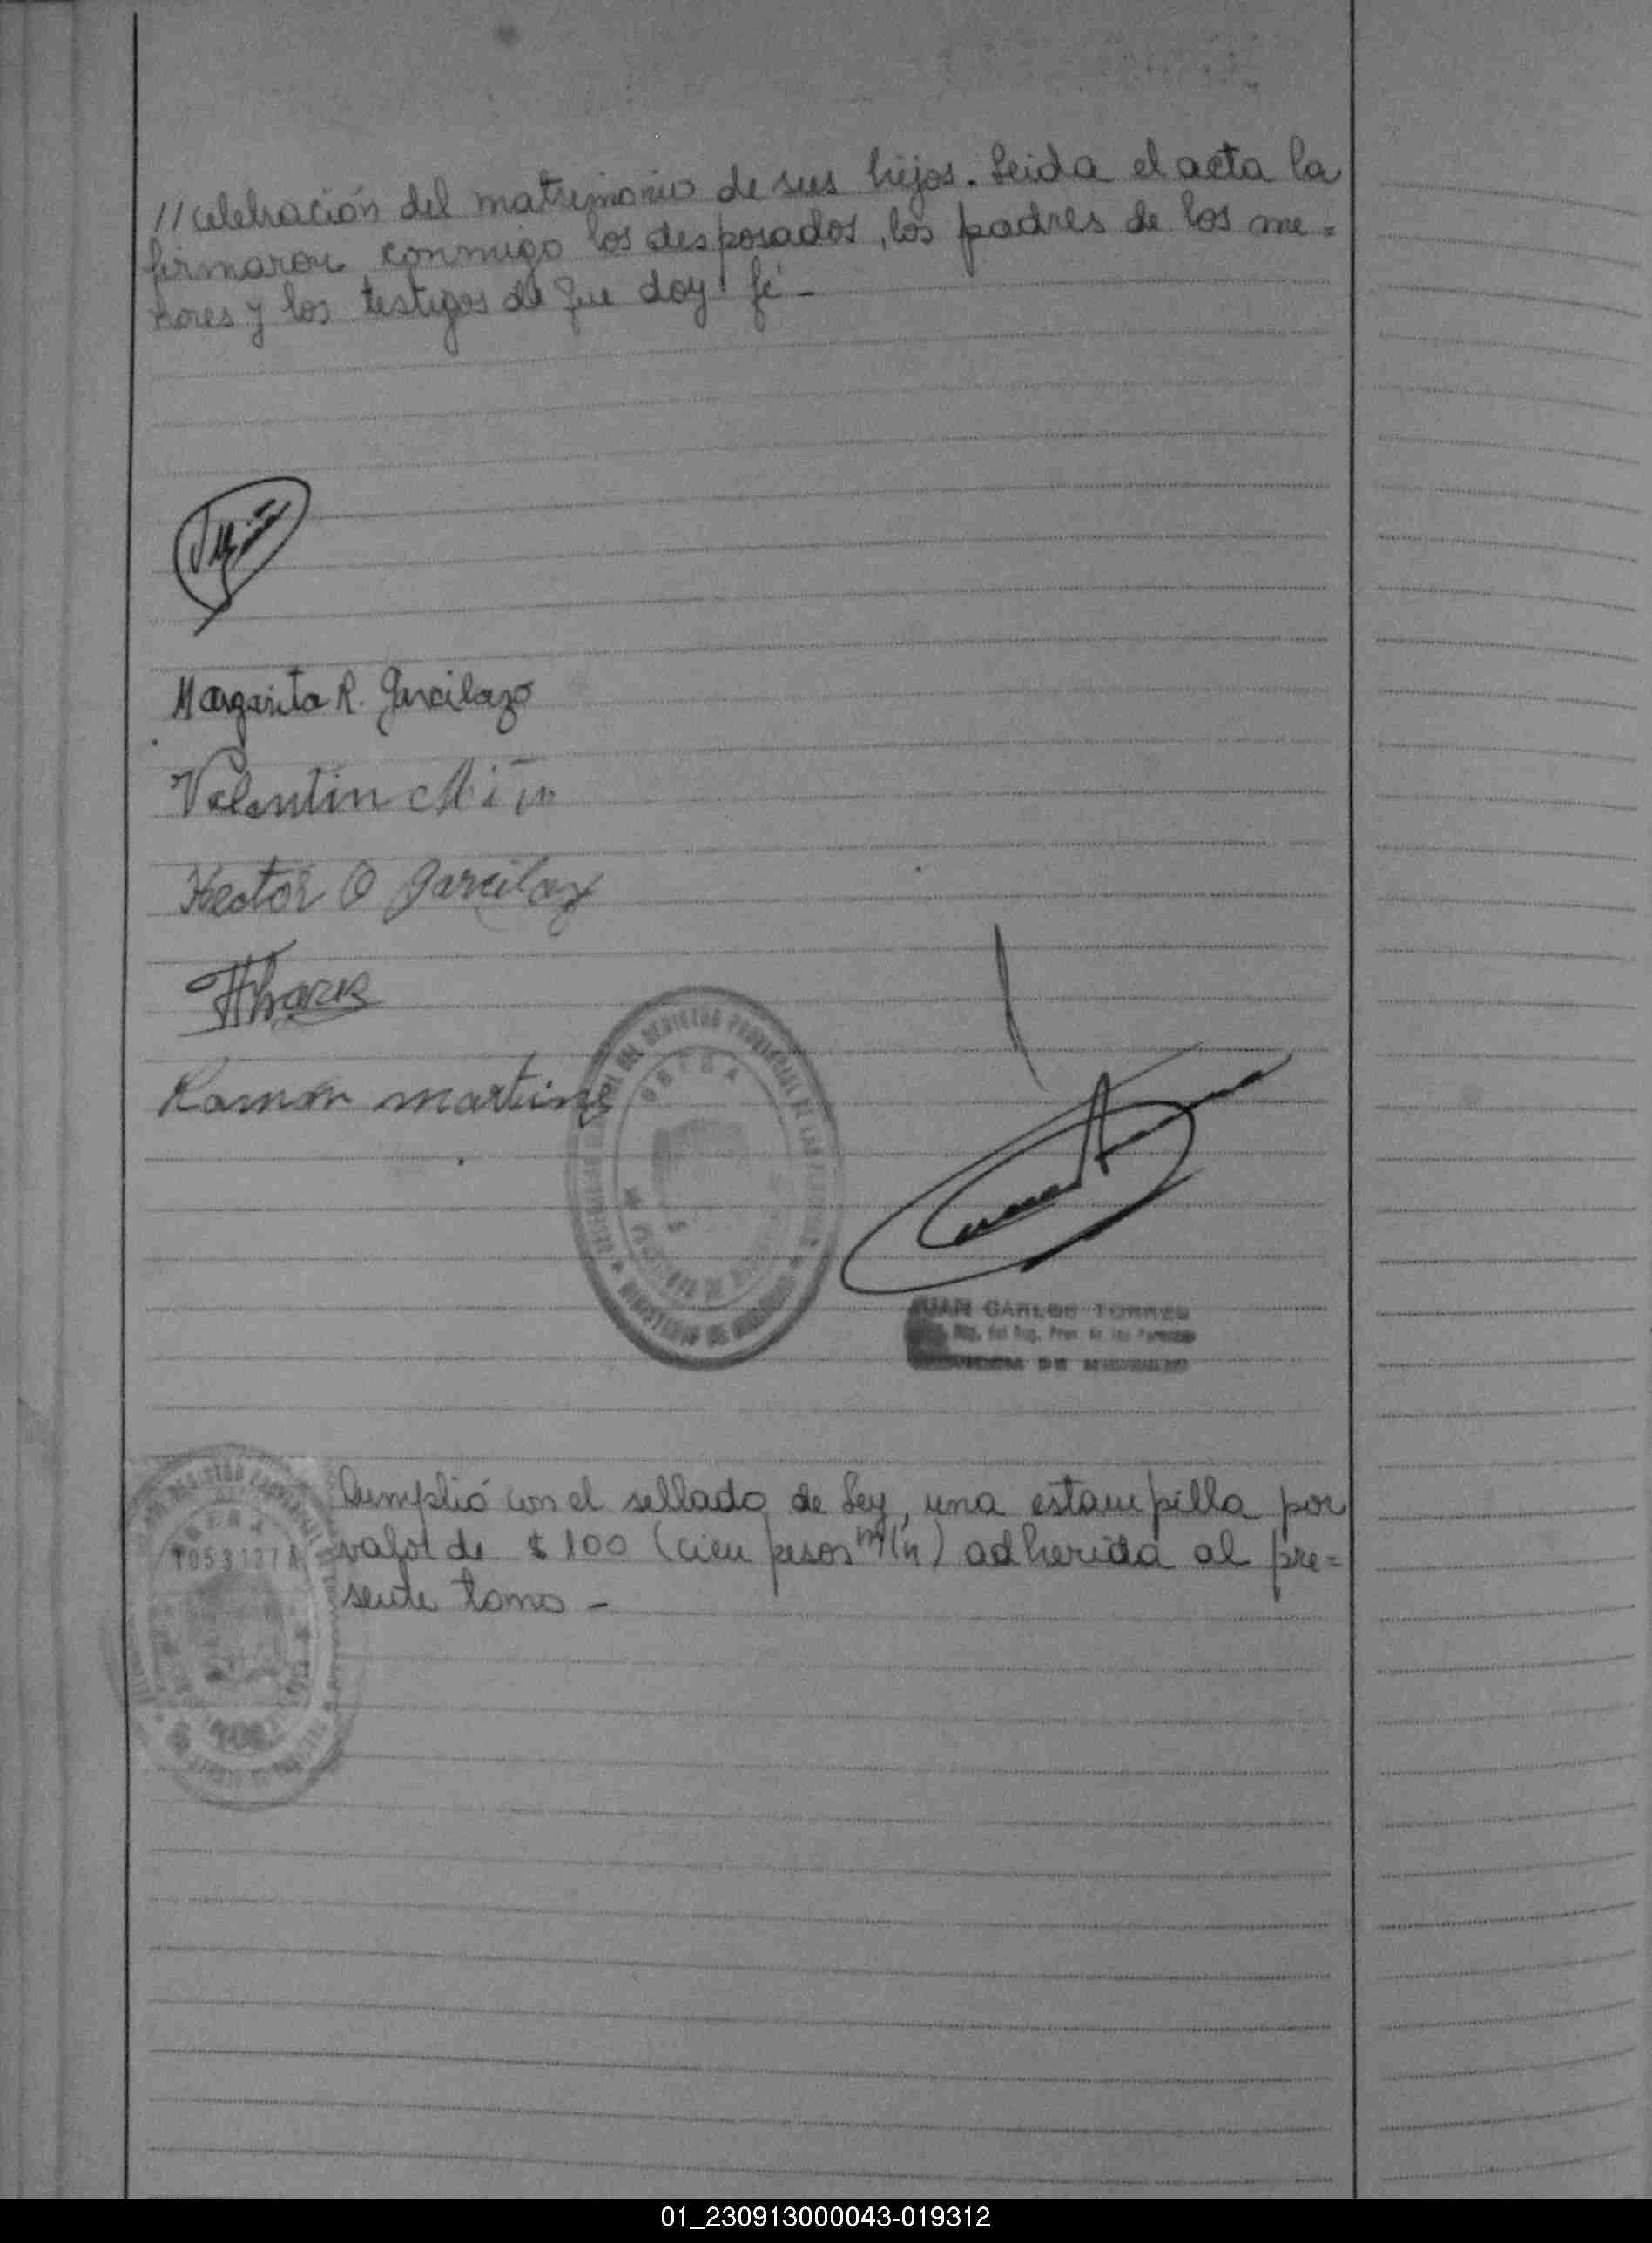 //celebración del matrimonio de sus hijos. Leida el acta la
firmaron conmigo los desposados, los padres de los me=
nores y los testigos de que doy fé-
Margarita R. Garcilazo
Valentin Miño
Hector O Garcilazo
Ramón martinez
DEL REGISTRO PROVINCIAL DE LAS PERSONAS
OBERA
MINISTERIO DE
JUAN CARLOS TORRES
del Reg. Prov. de las Personas
DE
Cumplió con el sellado de Ley, una estampilla por
valor de $ 100 (cien pesos m/n) adherida al pre=
sente tomo -
OBERA
1053137A
01_230913000043-019312